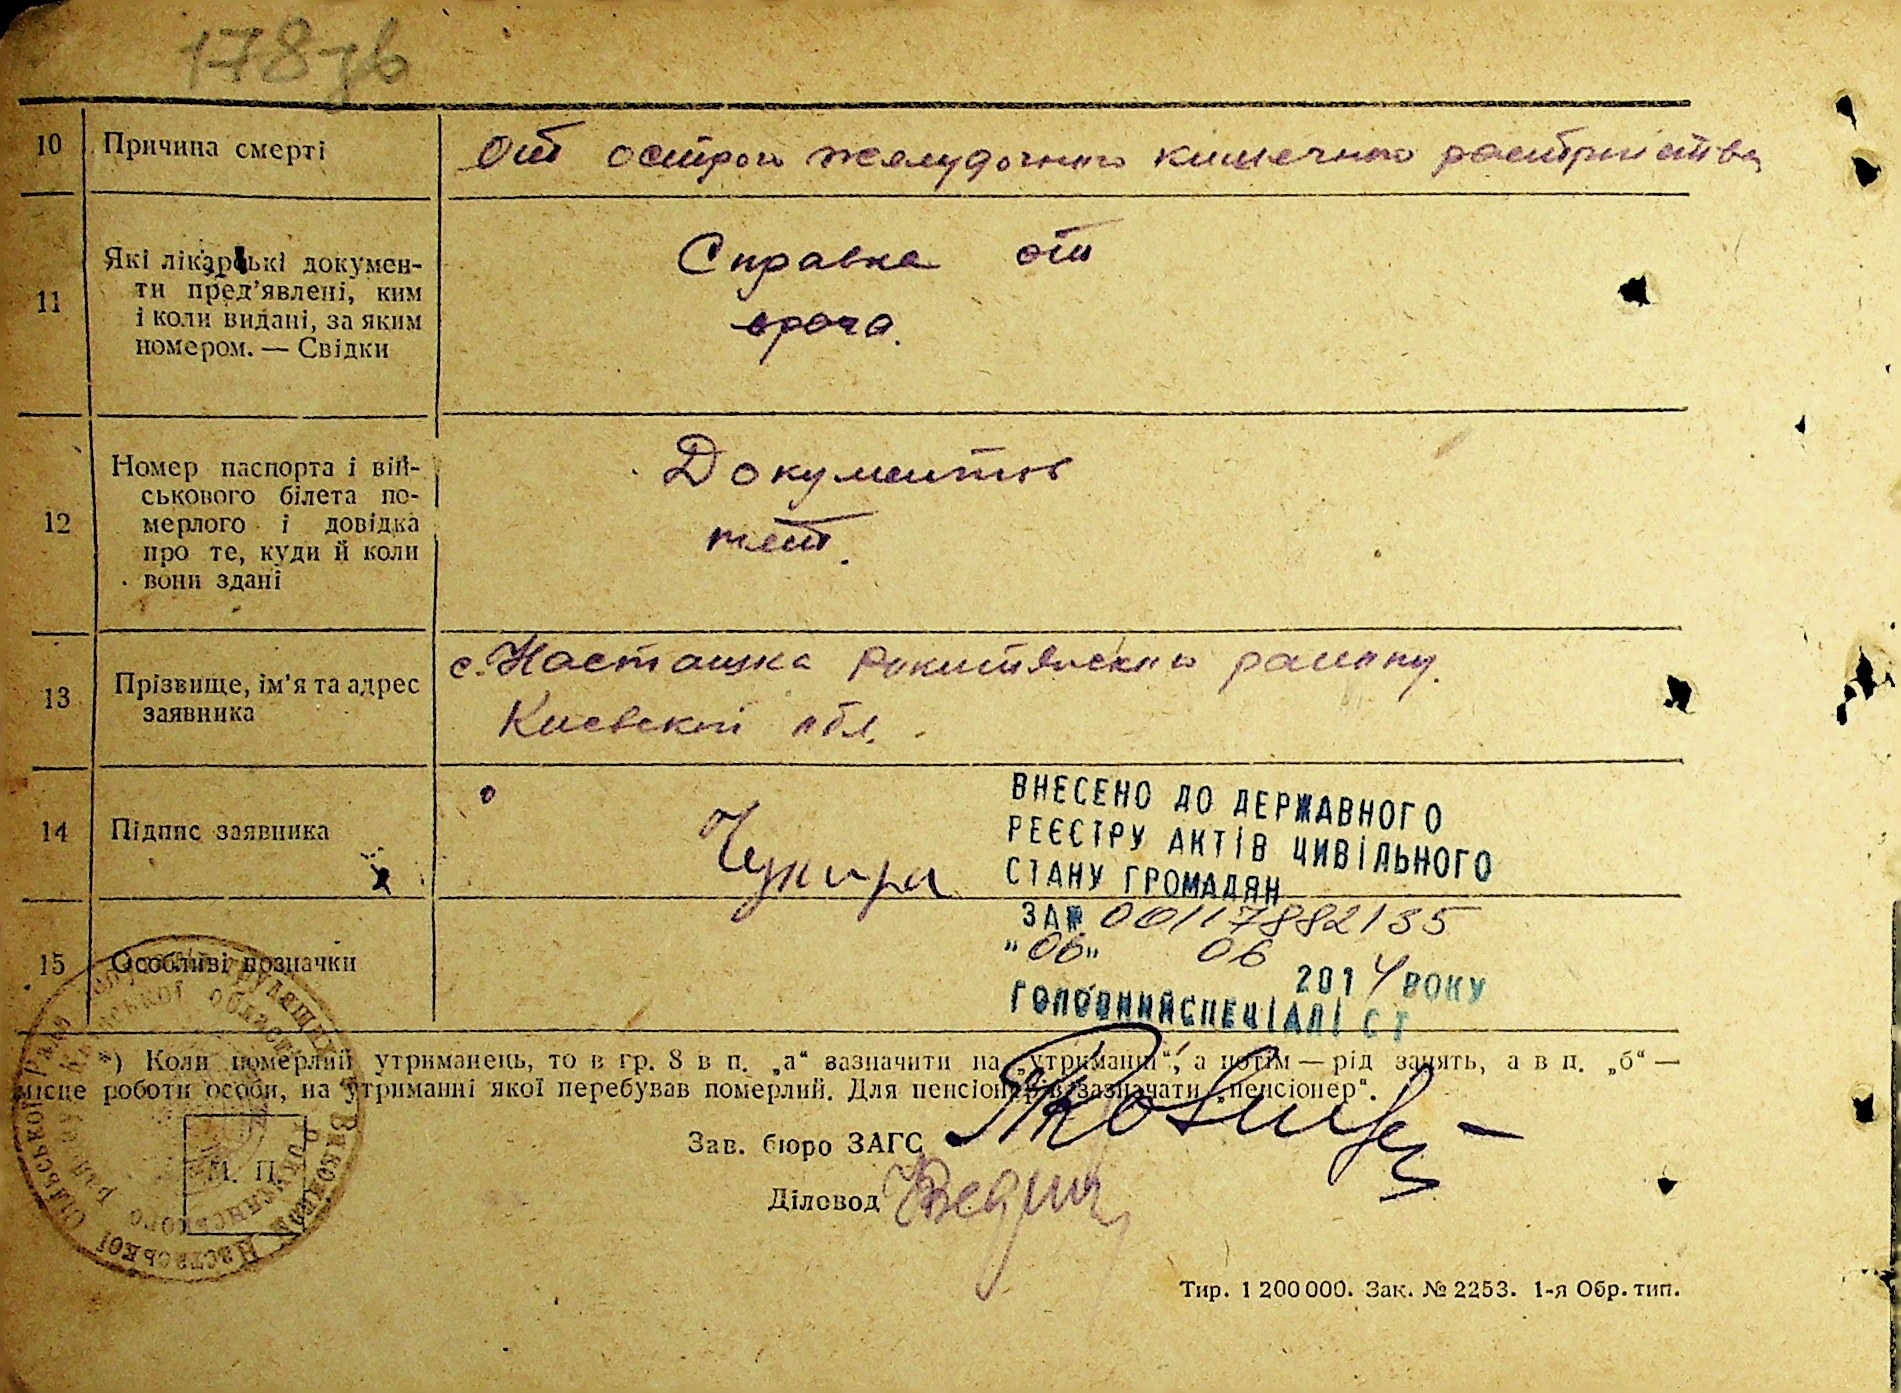 178зв
10 Причина смерті
От острого желудочного кишечного расстройства
11 Які лікарські докумен-
ти пред’явлені, ким
і коли видані, за яким
номером. — Свідки
Справка от
врача.
12 Номер паспорта і вій-
ськового білета по-
мерлого і довідка
про те, куди й коли
вони здані
Документов
нет.
13 Прізвище, ім’я та адрес
заявника
с. Насташка Рокитянского району.
Киевской обл.
14 Підпис заявника
15 Особливі позначки
ВНЕСЕНО ДО ДЕРЖАВНОГО
РЕЄСТРУ АКТІВ ЦИВІЛЬНОГО
СТАНУ ГРОМАДЯН
ЗА № 00117882135
"06" 06
2014 РОКУ
ГОЛОВНИЙ СПЕЦІАЛІСТ
*) Коли померлий утриманець, то в гр. 8 в п. „а“ вазначити на „утриманні“, а потім — рід занять, а в п. „б“ —
місце роботи особи, на утриманні якої перебував померлий. Для пенсіонерів зазначати „пенсіонер“.
Зав. бюро ЗАГС
Діловод
М. П.
Тир. 1 200 000. Зак. № 2253. 1-я Обр. тип.